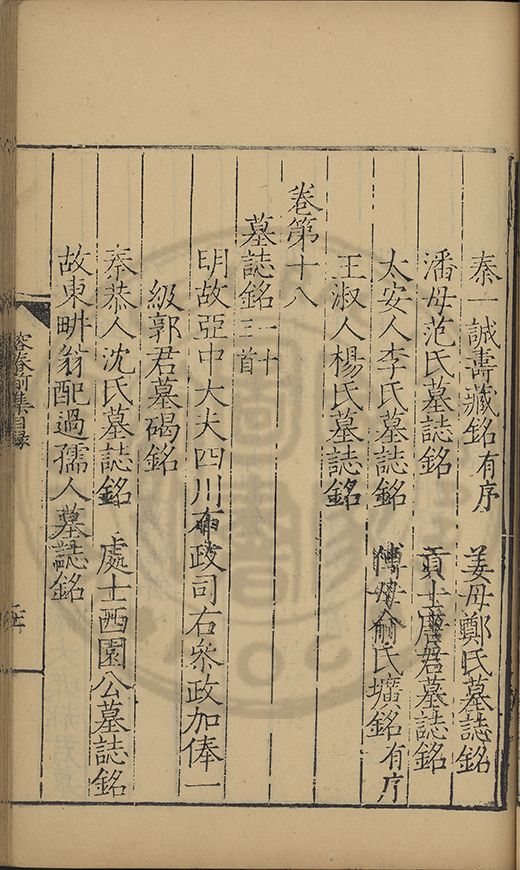 秦一誠壽藏銘有序 姜母鄭氏墓誌銘
潘母范氏墓誌銘 貢士唐君墓誌銘
太安人李氏墓誌銘 傅母俞氏壙銘有序
王淑人楊氏墓誌銘
卷第十八
墓誌銘一十三首
明故亞中大夫四川布政司右叅政加俸一
級郭君墓碣銘
秦恭人沈氏墓誌銘 處士西園公墓誌銘
故東畊翁配過孺人墓誌銘
容春前集目錄